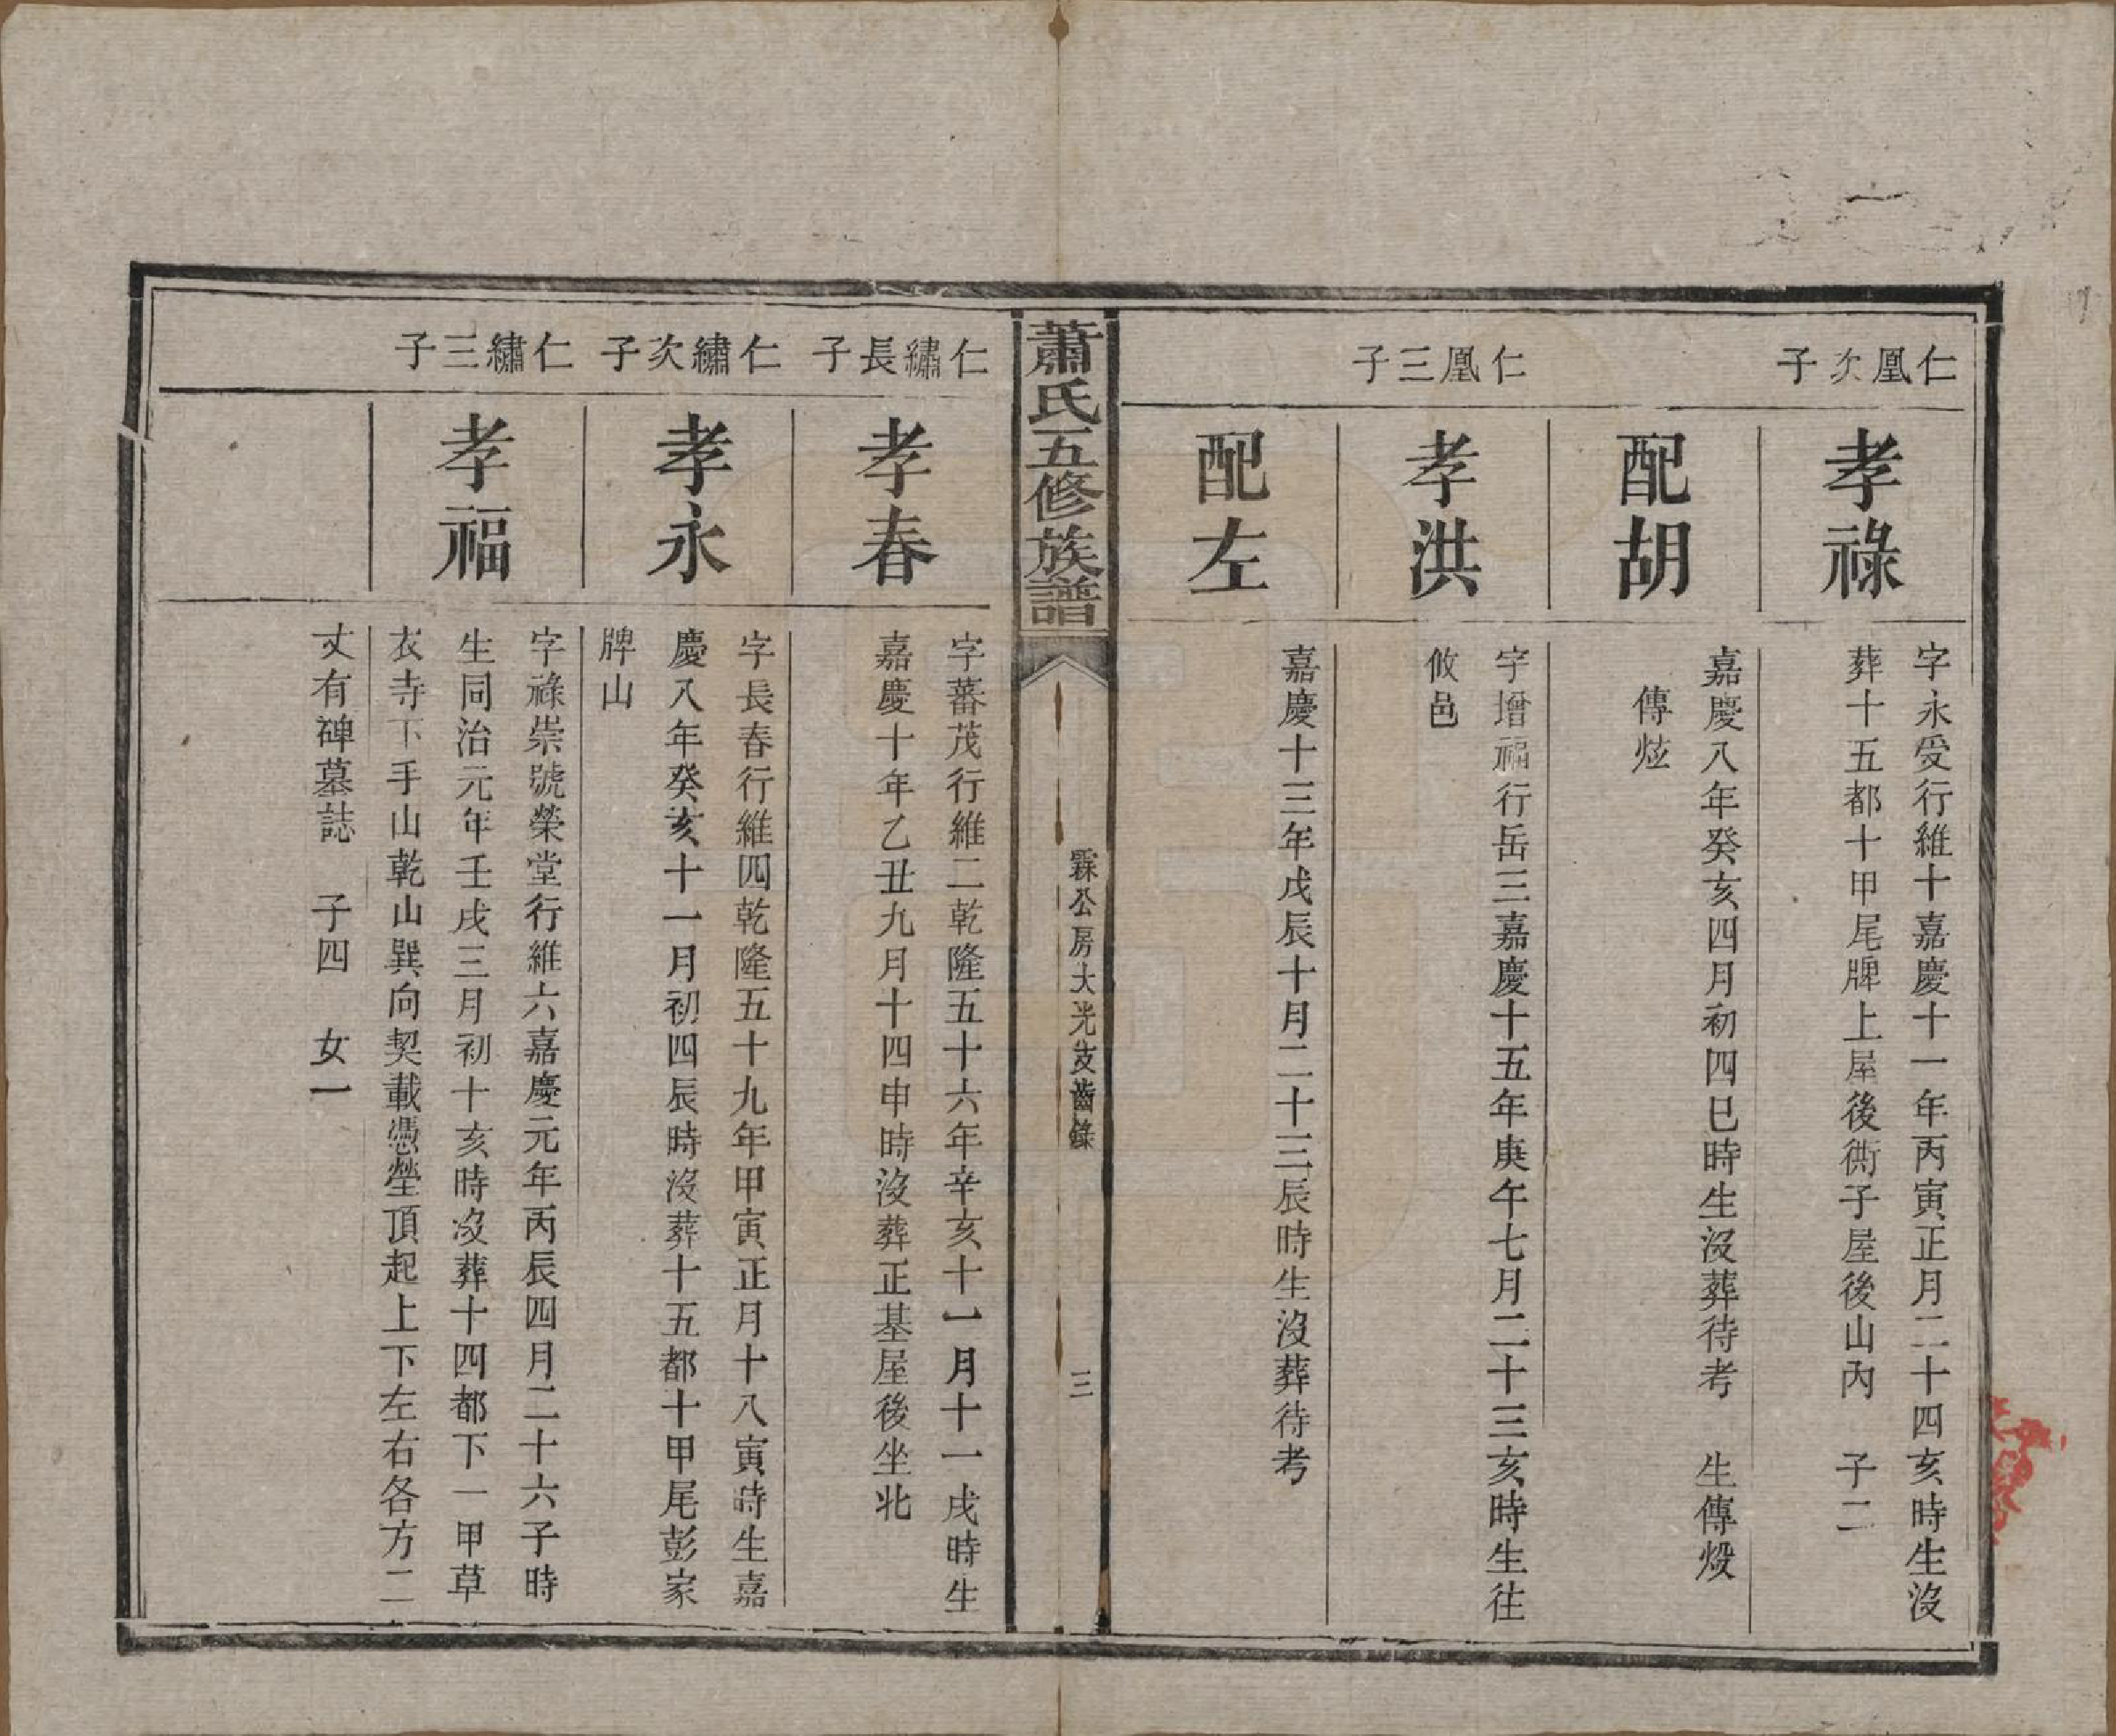 仁凰次子
孝祿
字永受行維十嘉慶十一年丙寅正月二十四亥時生沒
葬十五都十甲尾牌上屋後衖子屋後山內 子二
配胡
嘉慶八年癸亥四月初四巳時生沒葬待考 生傳煅
傳炫
仁凰三子
孝洪
字增福行岳三嘉慶十五年庚午七月二十三亥時生往
攸邑
配左
嘉慶十三年戊辰十月二十三辰時生沒葬待考
蕭氏五修族譜
霖公房大光支齒錄
三
仁繡長子
孝春
字蕃茂行維二乾隆五十六年辛亥十一月十一戌時生
嘉慶十年乙丑九月十四申時沒葬正基屋後坐北
仁繡次子
孝永
字長春行維四乾隆五十九年甲寅正月十八寅時生嘉
慶八年癸亥十一月初四辰時沒葬十五都十甲尾彭家
牌山
仁繡三子
孝福
字祿崇號榮堂行維六嘉慶元年丙辰四月二十六子時
生同治元年壬戌三月初十亥時沒葬十四都下一甲草
衣寺下手山乾山巽向契載憑塋頂起上下左右各方二
丈有碑墓誌 子四 女一